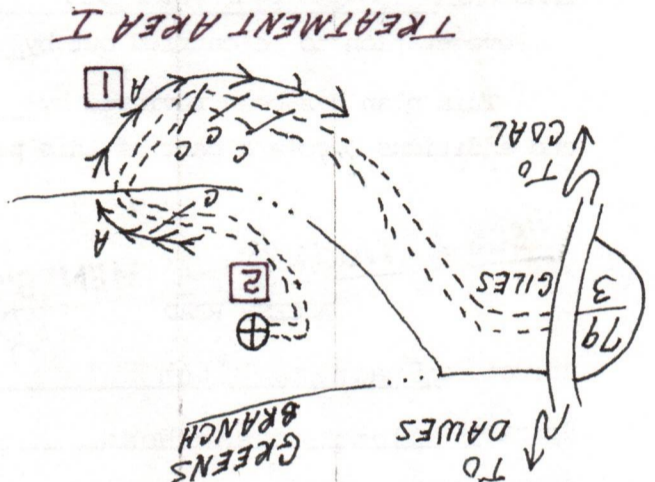 TO
DAWES
GREENS
BRANCH
79
3
GILES
2
A
C
C
C
A
1
TO
COAL
TREATMENT AREA I